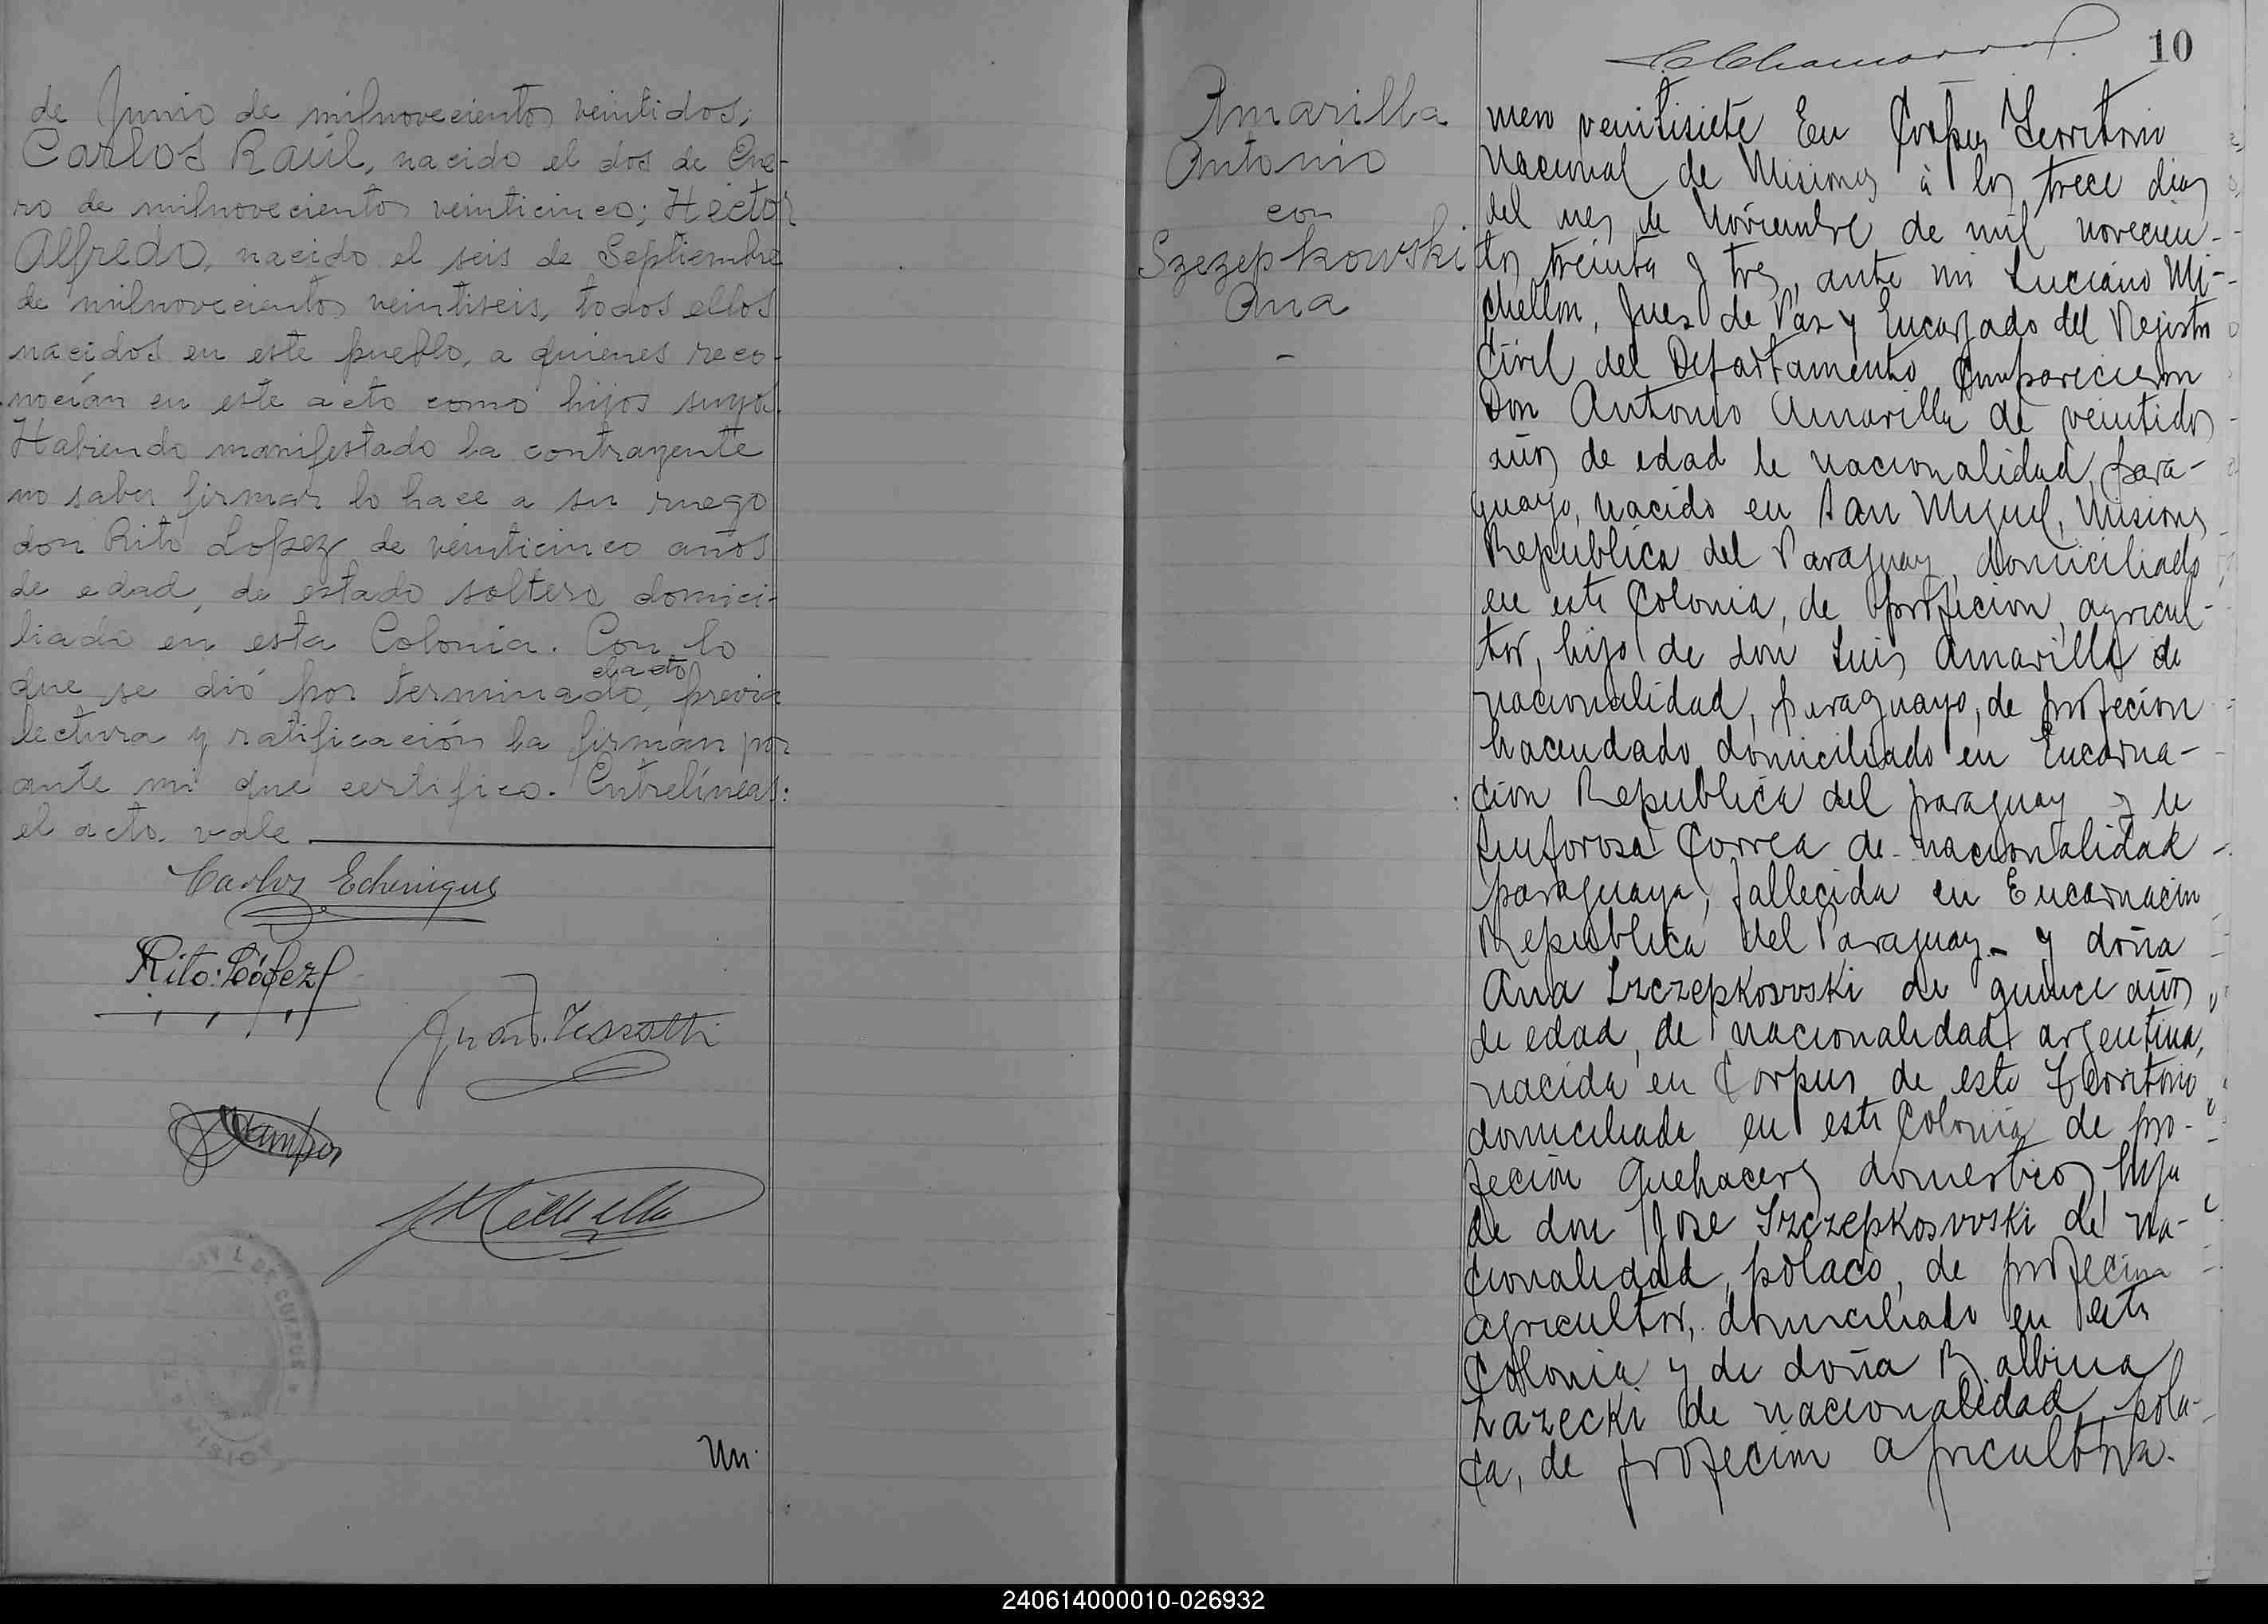 de Junio de milnovecientos veintidos;
Carlos Raúl, nacido el dos de Ene-
ro de milnovecientos veinticinco; Héctor
Alfredo, nacido el seis de Septiembre
de milnovecientos veintiseis, todos ellos
nacidos en este pueblo, a quienes reco-
nocían en este acto como hijos suyos.
Habiendo manifestado la contrayente
no saber firmar lo hace a su ruego
don Rito Lopez de veinticinco años
de edad, de estado soltero domici-
liado en esta Colonia. Con lo
el acto
que se dió por terminado, previa
lectura y ratificación la firman por
ante mi que certifico. Entrelíneas:
el acto. vale
Carlos Echenique
Rito López
Juan Tessotti
Un
10
Amarilla
Antonio
con
Szezepkowski
Ana
mero veintisiete En Corpus Territorio
Nacional de Misiones á los trece dias
del mes de Noviembre de mil novecien-
tos treinta y tres, ante mi Luciano Mi-
chellon, Juez de Paz y Encargado del Registro
Civil del Departamento Comparecieron
Don Antonio Amarilla de veintidos
años de edad de nacionalidad, para-
guayo, nacido en San Miguel, Misiones
Republica del Paraguay, domiciliado
en esta Colonia, de profecion, agricul-
tor, hijo de don Luis Amarilla de
nacionalidad, paraguayo, de profecion
hacendado domiciliado en Encarna-
cion Republica del paraguay y de
Sinforosa Correa de nacionalidad
paraguaya, fallecida en Encarnacion
Republica del Paraguay - y doña
Ana Szczepkovvski de quince años
de edad, de nacionalidad argentina,
nacida en Corpus de este Territorio
domiciliada en esta Colonia de pro-
fecion quehaceres domesticos, hija
de don Jose Szczepkosvvski de na-
cionalidad, polaco, de profecion
agricultor, domiciliado en esta
Colonia y de doña Balbina
Lazecki de nacionalidad pola-
ca, de profecion agricultora.
240614000010-026932